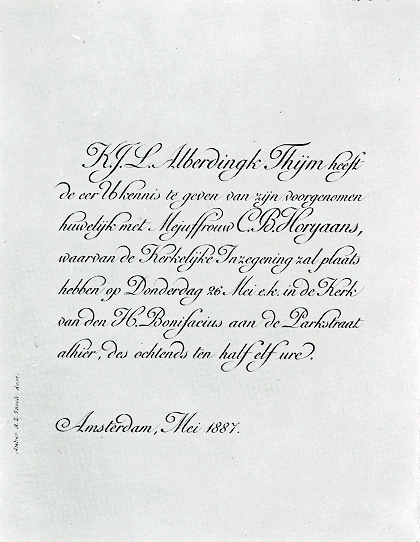 K.J.L. Alberdingk Thijm heeft
de eer U kennis te geven van zijn voorgenomen
huwelijk met Mejuffrouw C.B. Horyaans,
waarvan de Kerkelijke Inzegening zal plaats
hebben op Donderdag 26 Mei e.k. in de Kerk
van den H. Bonifacius aan de Parkstraat
alhier, des ochtends ten half elf ure.
Amsterdam, Mei 1887.